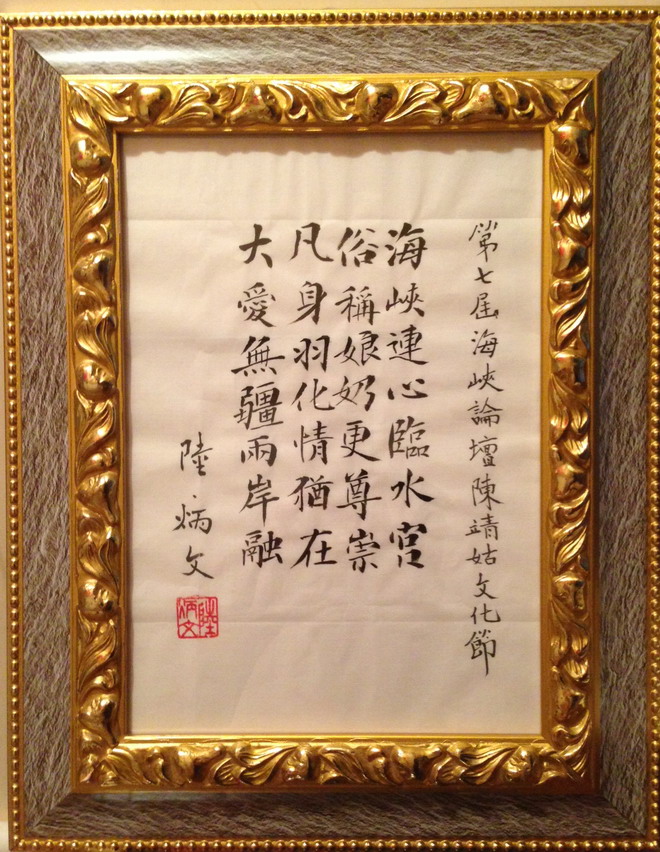 第七届海峽論壇陳靖姑文化節
海峽連心臨水宮
俗稱娘奶更尊崇
凡身羽化情猶在
大愛無疆兩岸融
陸炳文
陸炳文